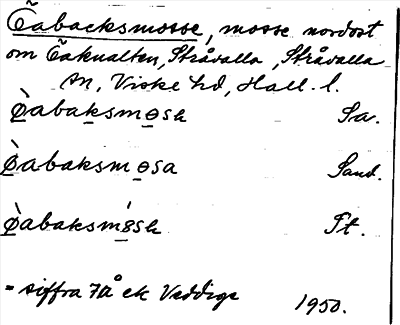 Tabacksmosse, mosse nordost
om Takvalten, Stråvalla, Stråvalla
sn, Viske hd, Hall. l.
tabaksmosa Sa.
tabaksmosa Sand.
tabaksmosa Pt.
= siffra 7å ek Veddige 1950.